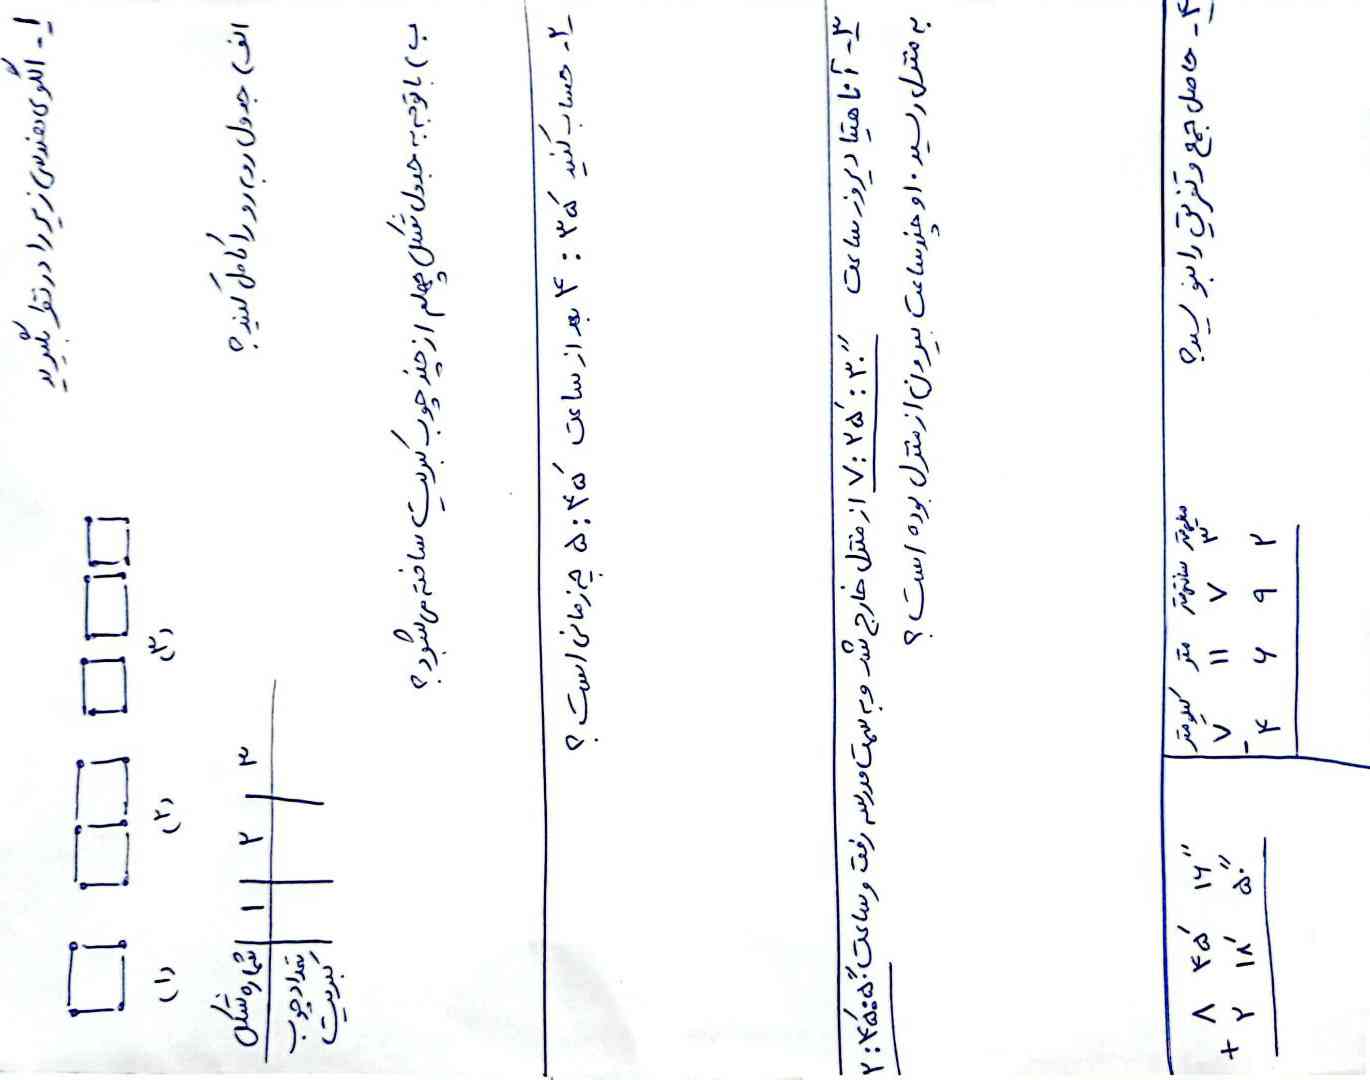 ۱- الگوی هندسی زیر را در نظر بگیرید
(۱) (۲) (۳)
الف) جدول روبه رو را کامل کنید؟
شماره شکل ۱ ۲ ۳
تعداد چوب کبریت
ب) با توجه به جدول شکل چهلم از چند چوب کبریت ساخته می شود؟
۲- حساب کنید ۴:۳۵′ بعد از ساعت ۵:۴۵′ چه زمانی است؟
۳- آناهیتا دیروز ساعت ۷:۲۵′:۳۰″ از منزل خارج شد و به سمت مدرسه رفت و ساعت ۲:۴۵′:۵۰″
به منزل رسید. او چند ساعت بیرون از منزل بوده است؟
۴- حاصل جمع و تفریق را بنویسید؟
کیلومتر متر سانتیمتر میلیمتر
۷ ۱۱ ۷ ۳
- ۴ ۶ ۹ ۲
۸ ۴۵′ ۱۶″
+ ۲ ۱۸′ ۵۰″